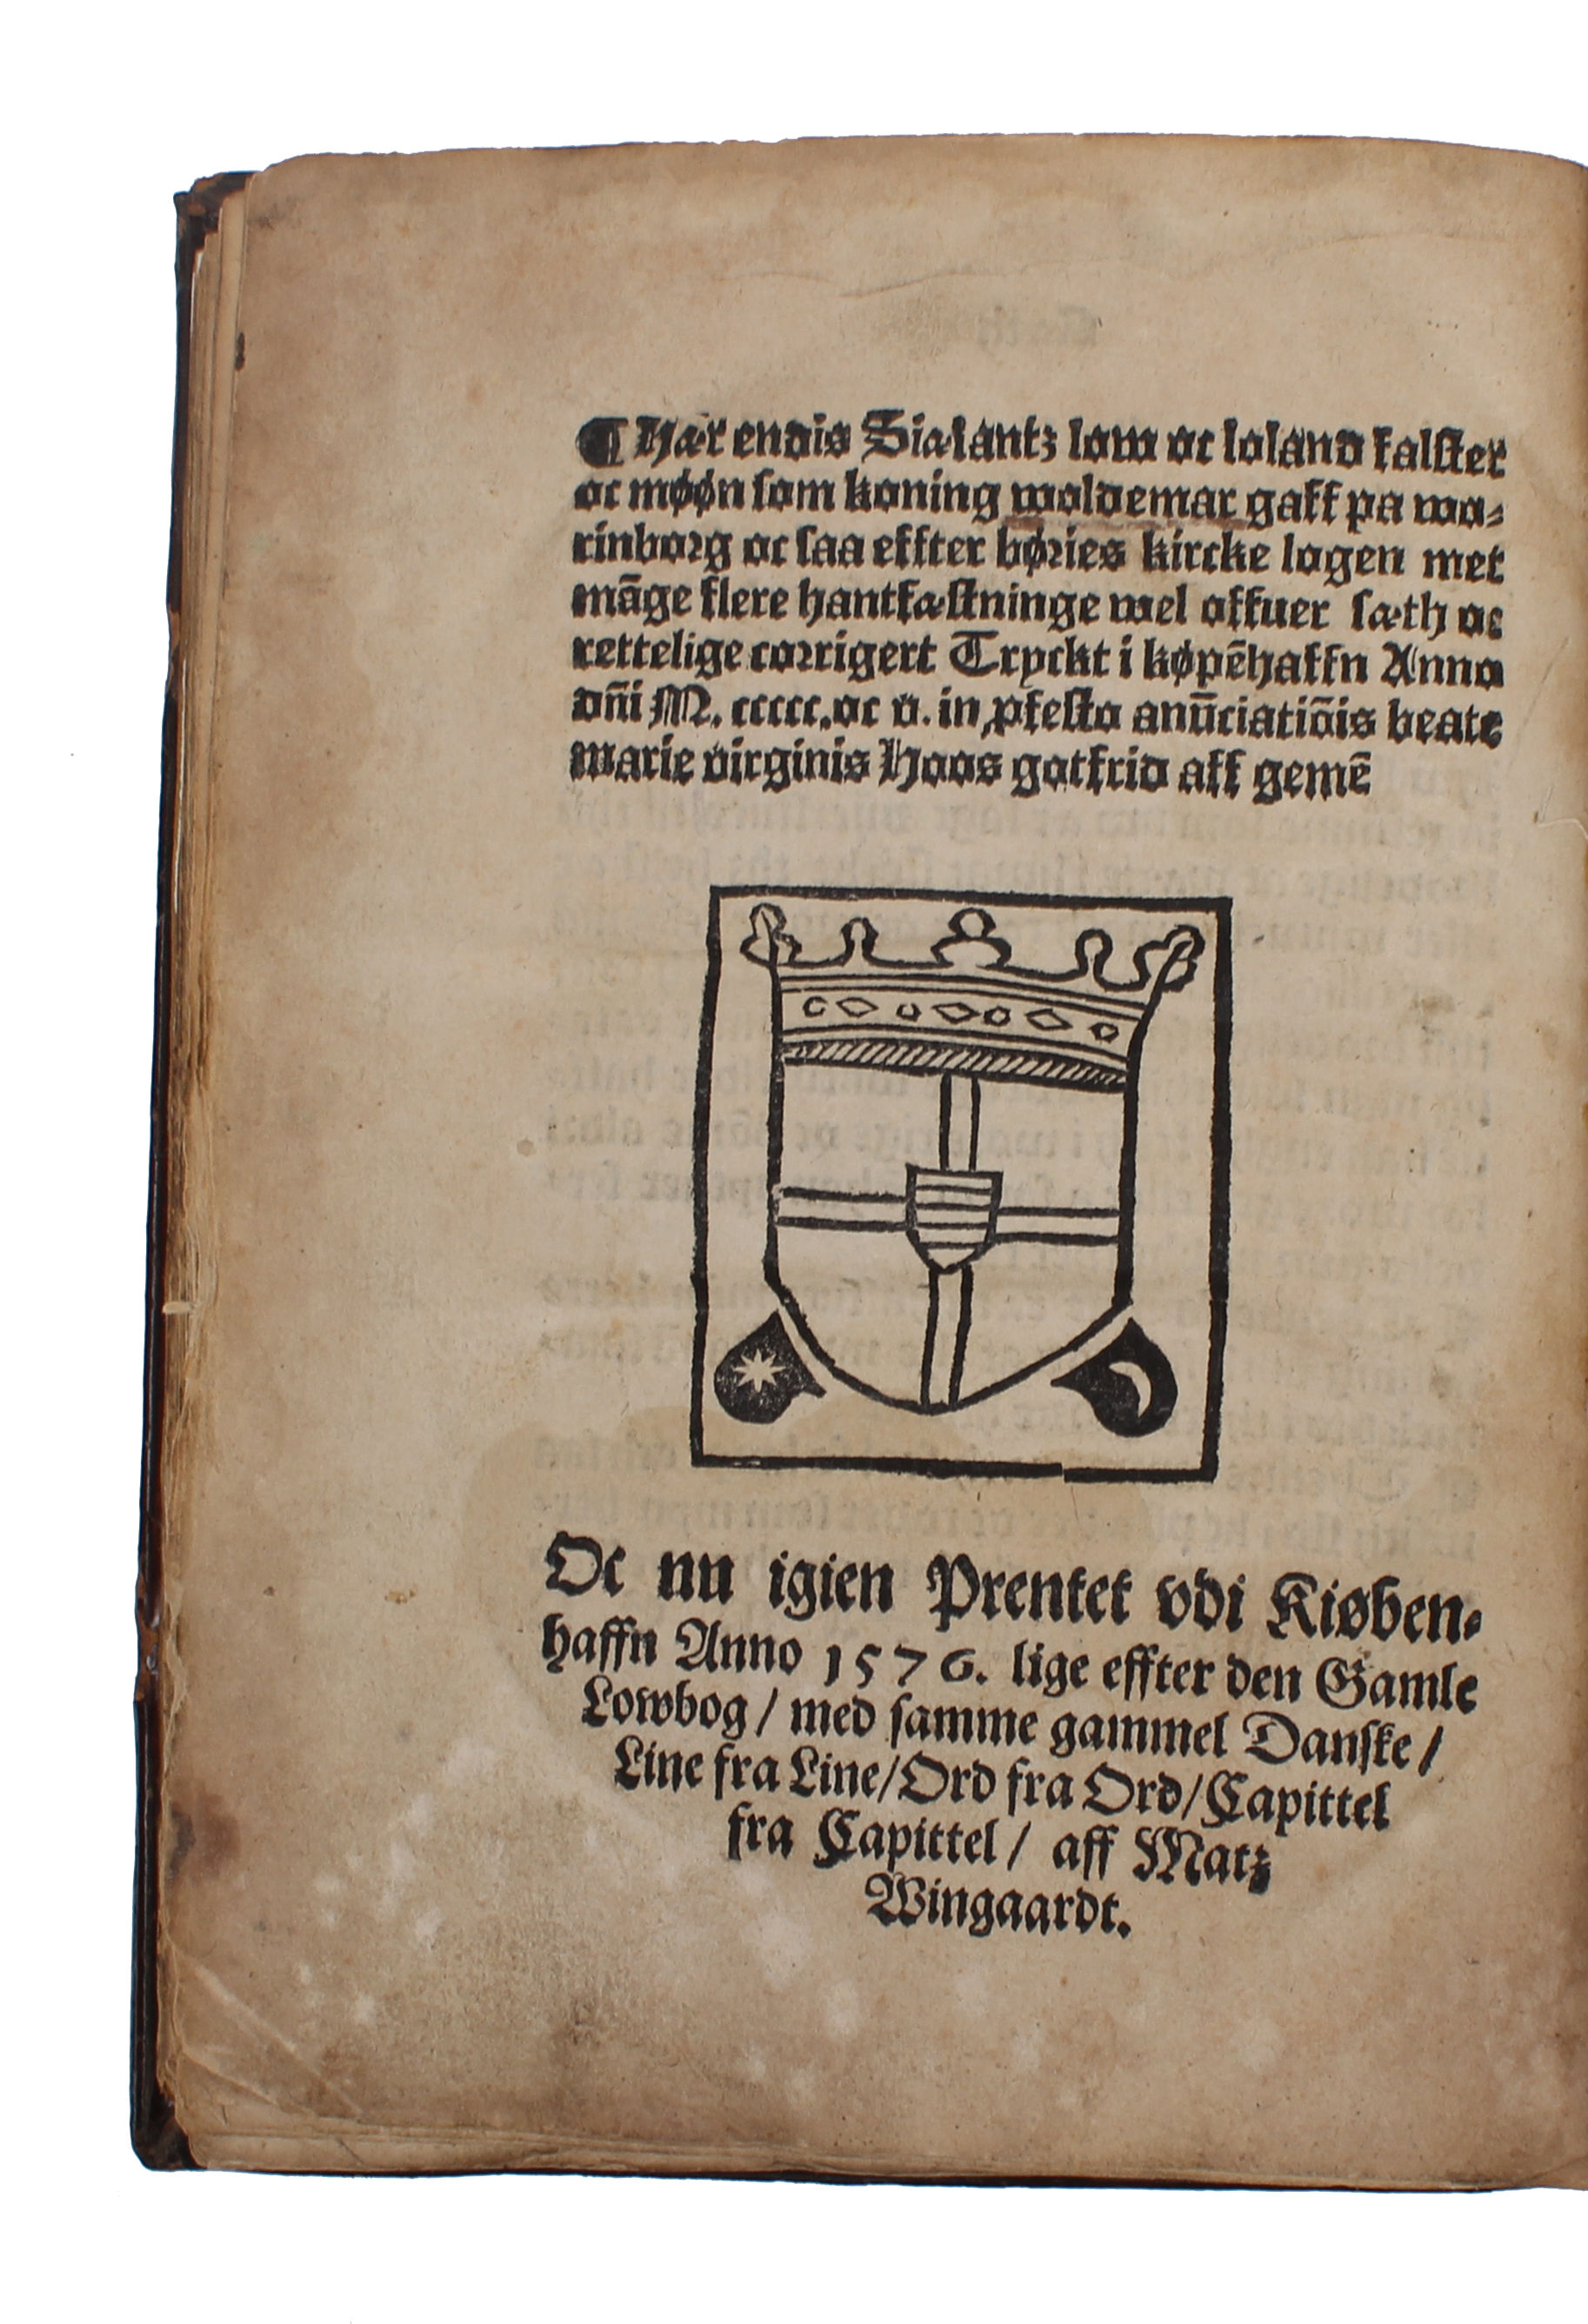 ¶ Hær endis Siælantz low oc loland falster
oc møøn som koning woldemar gaff pa wo⸗
rinborg oc saa effter børies kircke logen met
mãge flere hantfæstninge wel offuer sæth oc
rettelige corrigert Tryckt i køpẽhaffn Anno
dñi M. ccccc.oc v. in ꝓfesto anũciatiõis beate
marie virginis Hoos gotfrid aff gemẽ
Oc nu igien Prentet vdi Kiøben⸗
haffn Anno 1576. lige effter den Gamle
Lowbog / med samme gammel Danske /
Line fra Line/Ord fra Ord/Capittel
fra Capittel / aff Matz
Wingaardt.